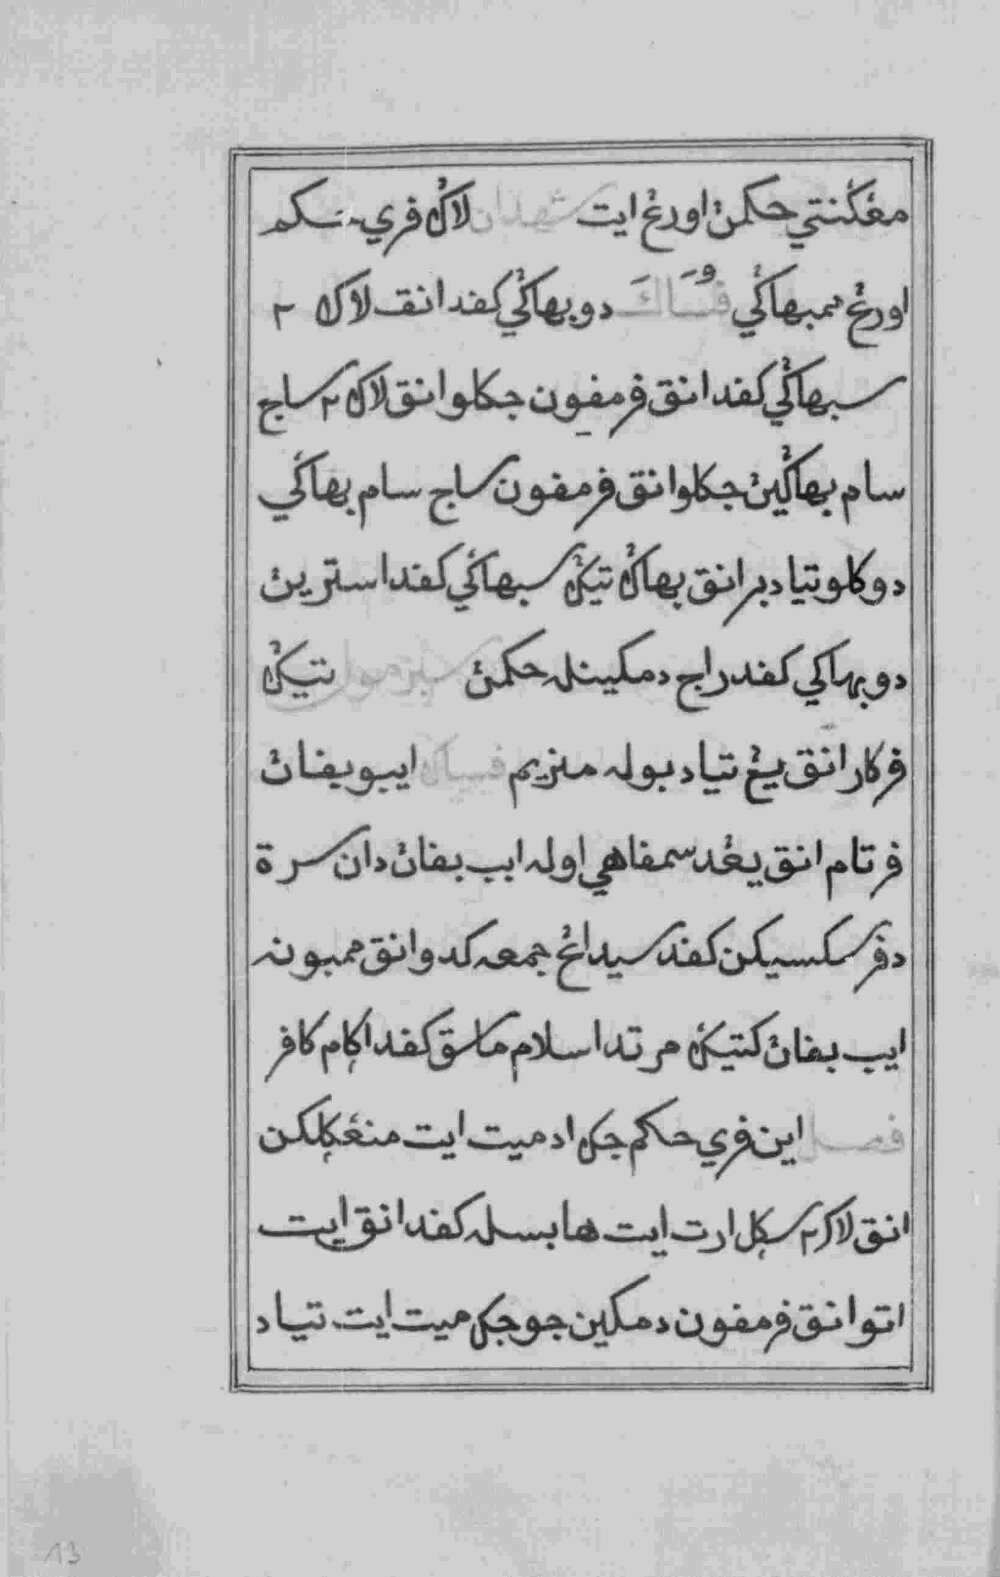 مڠݢنتي حكمن اورڠ ايت شهدان لاݢ فري حكم
اورڠ ممبهاݢي فساك دوبهاݢي كفد انق لاك ٢
سبهاݢي كفد انق فرمفون جكلو انق لاك٢ ساج
سام بهاݢين جكلو انق فرمفون ساج سام بهاݢي
دوكلو تياد بر انق بهاݢ تيݢ سبهاݢي كفد استرين
دوبهاكي كفد راج دمكينله حكمن سبرمول تيݢ
فركار انق يڠ تياد بوله منريم فساك ايبو بفان
فرتام انق يڠد سمفاهي اوله ايب بفان دان سرة
دفرسكسيكن كفد سيداڠ جمعه كدو انق ممبونه
ايب بفان كتيݢ مرتد اسلام ماسق كفد اݢام كافر
فصل اين فري حكم جك اد ميت ايت منڠݢلكن
انق لاك٢ سݢل ارت ايت هابسله كفد انق ايت
اتو انق فرمفون دمكين جو جك ميت ايت تياد
13